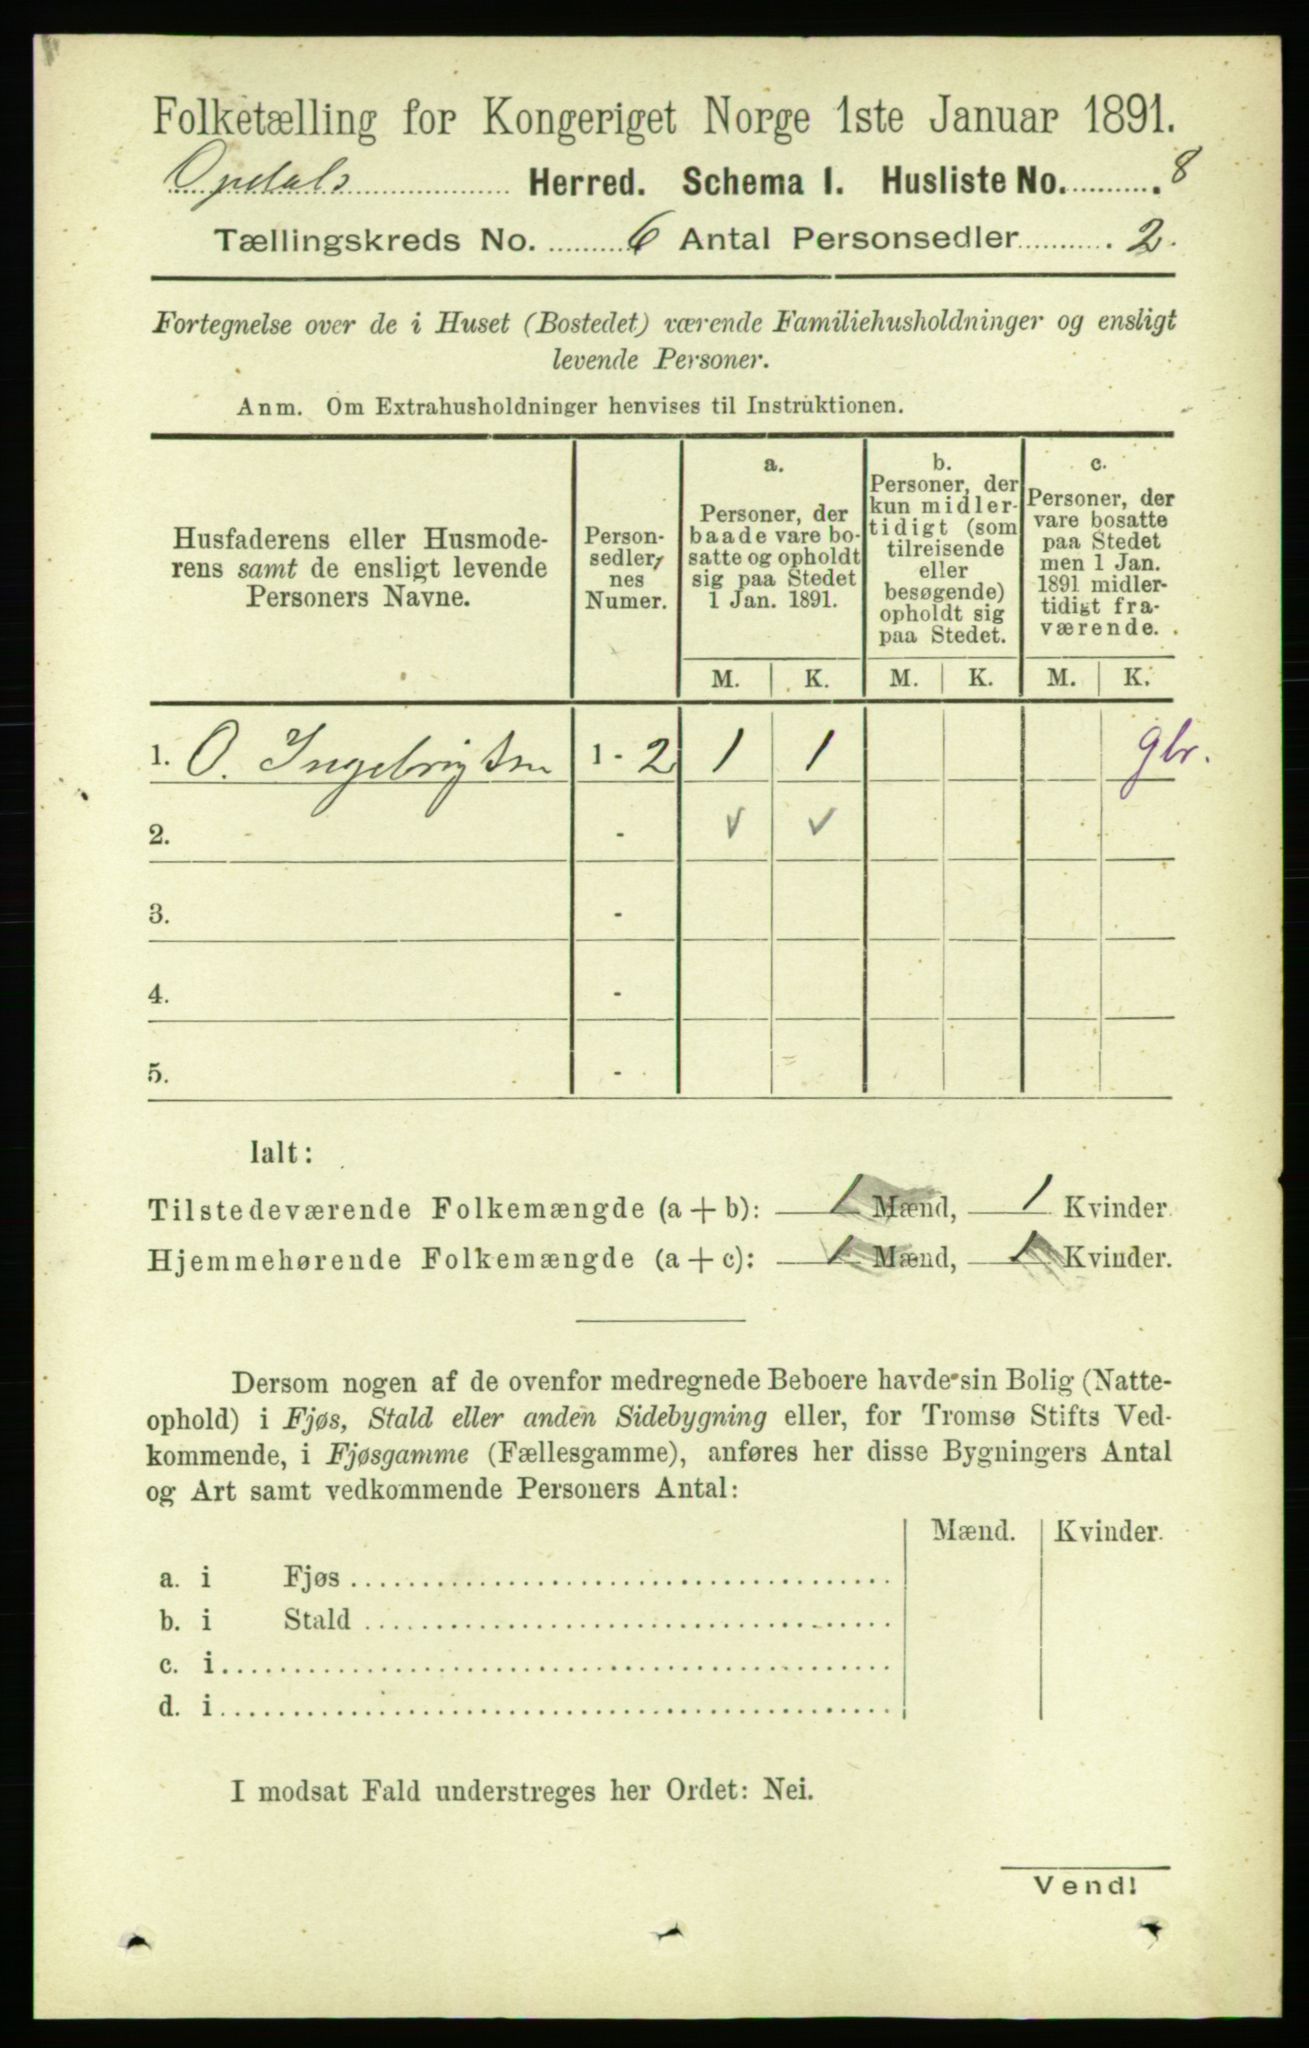 Folketælling for Kongeriget Norge 1ste Januar 1891.
Opdals Herred. Schema 1. Husliste No. 8
Tællingskreds No. 6 Antal Personsedler 2.
Fortegnelse over de i Huset (Bostedet) værende Familiehusholdninger og ensligt
levende Personer.
Anm. Om Extrahusholdninger henvises til Instruktionen.
Husfaderens eller Husmode-
rens samt de ensligt levende
Personers Navne.
Person-
sedler,
nes
Numer.
a.
Personer, der
baade vare bo-
satte og opholdt
sig paa Stedet
1 Jan. 1891.
b.
Personer, der
kun midler-
tidigt (som
tilreisende
eller
besøgende)
opholdt sig
paa Stedet.
c.
Personer, der
vare bosatte
paa Stedet
men 1 Jan.
1891 midler-
tidigt fra-
værende.
M. K. M. K. M. K.
1. O. Ingebrigtsen 1 - 2 1 1 gbr.
2. - ✓ ✓
3. -
4. -
5. -
Ialt:
Tilstedeværende Folkemængde (a + b): 1 Mænd, 1 Kvinder.
Hjemmehørende Folkemængde (a + c): 1 Mænd, 1 Kvinder.
Dersom nogen af de ovenfor medregnede Beboere havde sin Bolig (Natte-
ophold) i Fjøs, Stald eller anden Sidebygning eller, for Tromsø Stifts Ved-
kommende, i Fjøsgamme (Fællesgamme), anføres her disse Bygningers Antal
og Art samt vedkommende Personers Antal:
Mænd. Kvinder.
a. i Fjøs
b. i Stald
c. i
d. i
I modsat Fald understreges her Ordet: Nei.
Vend!